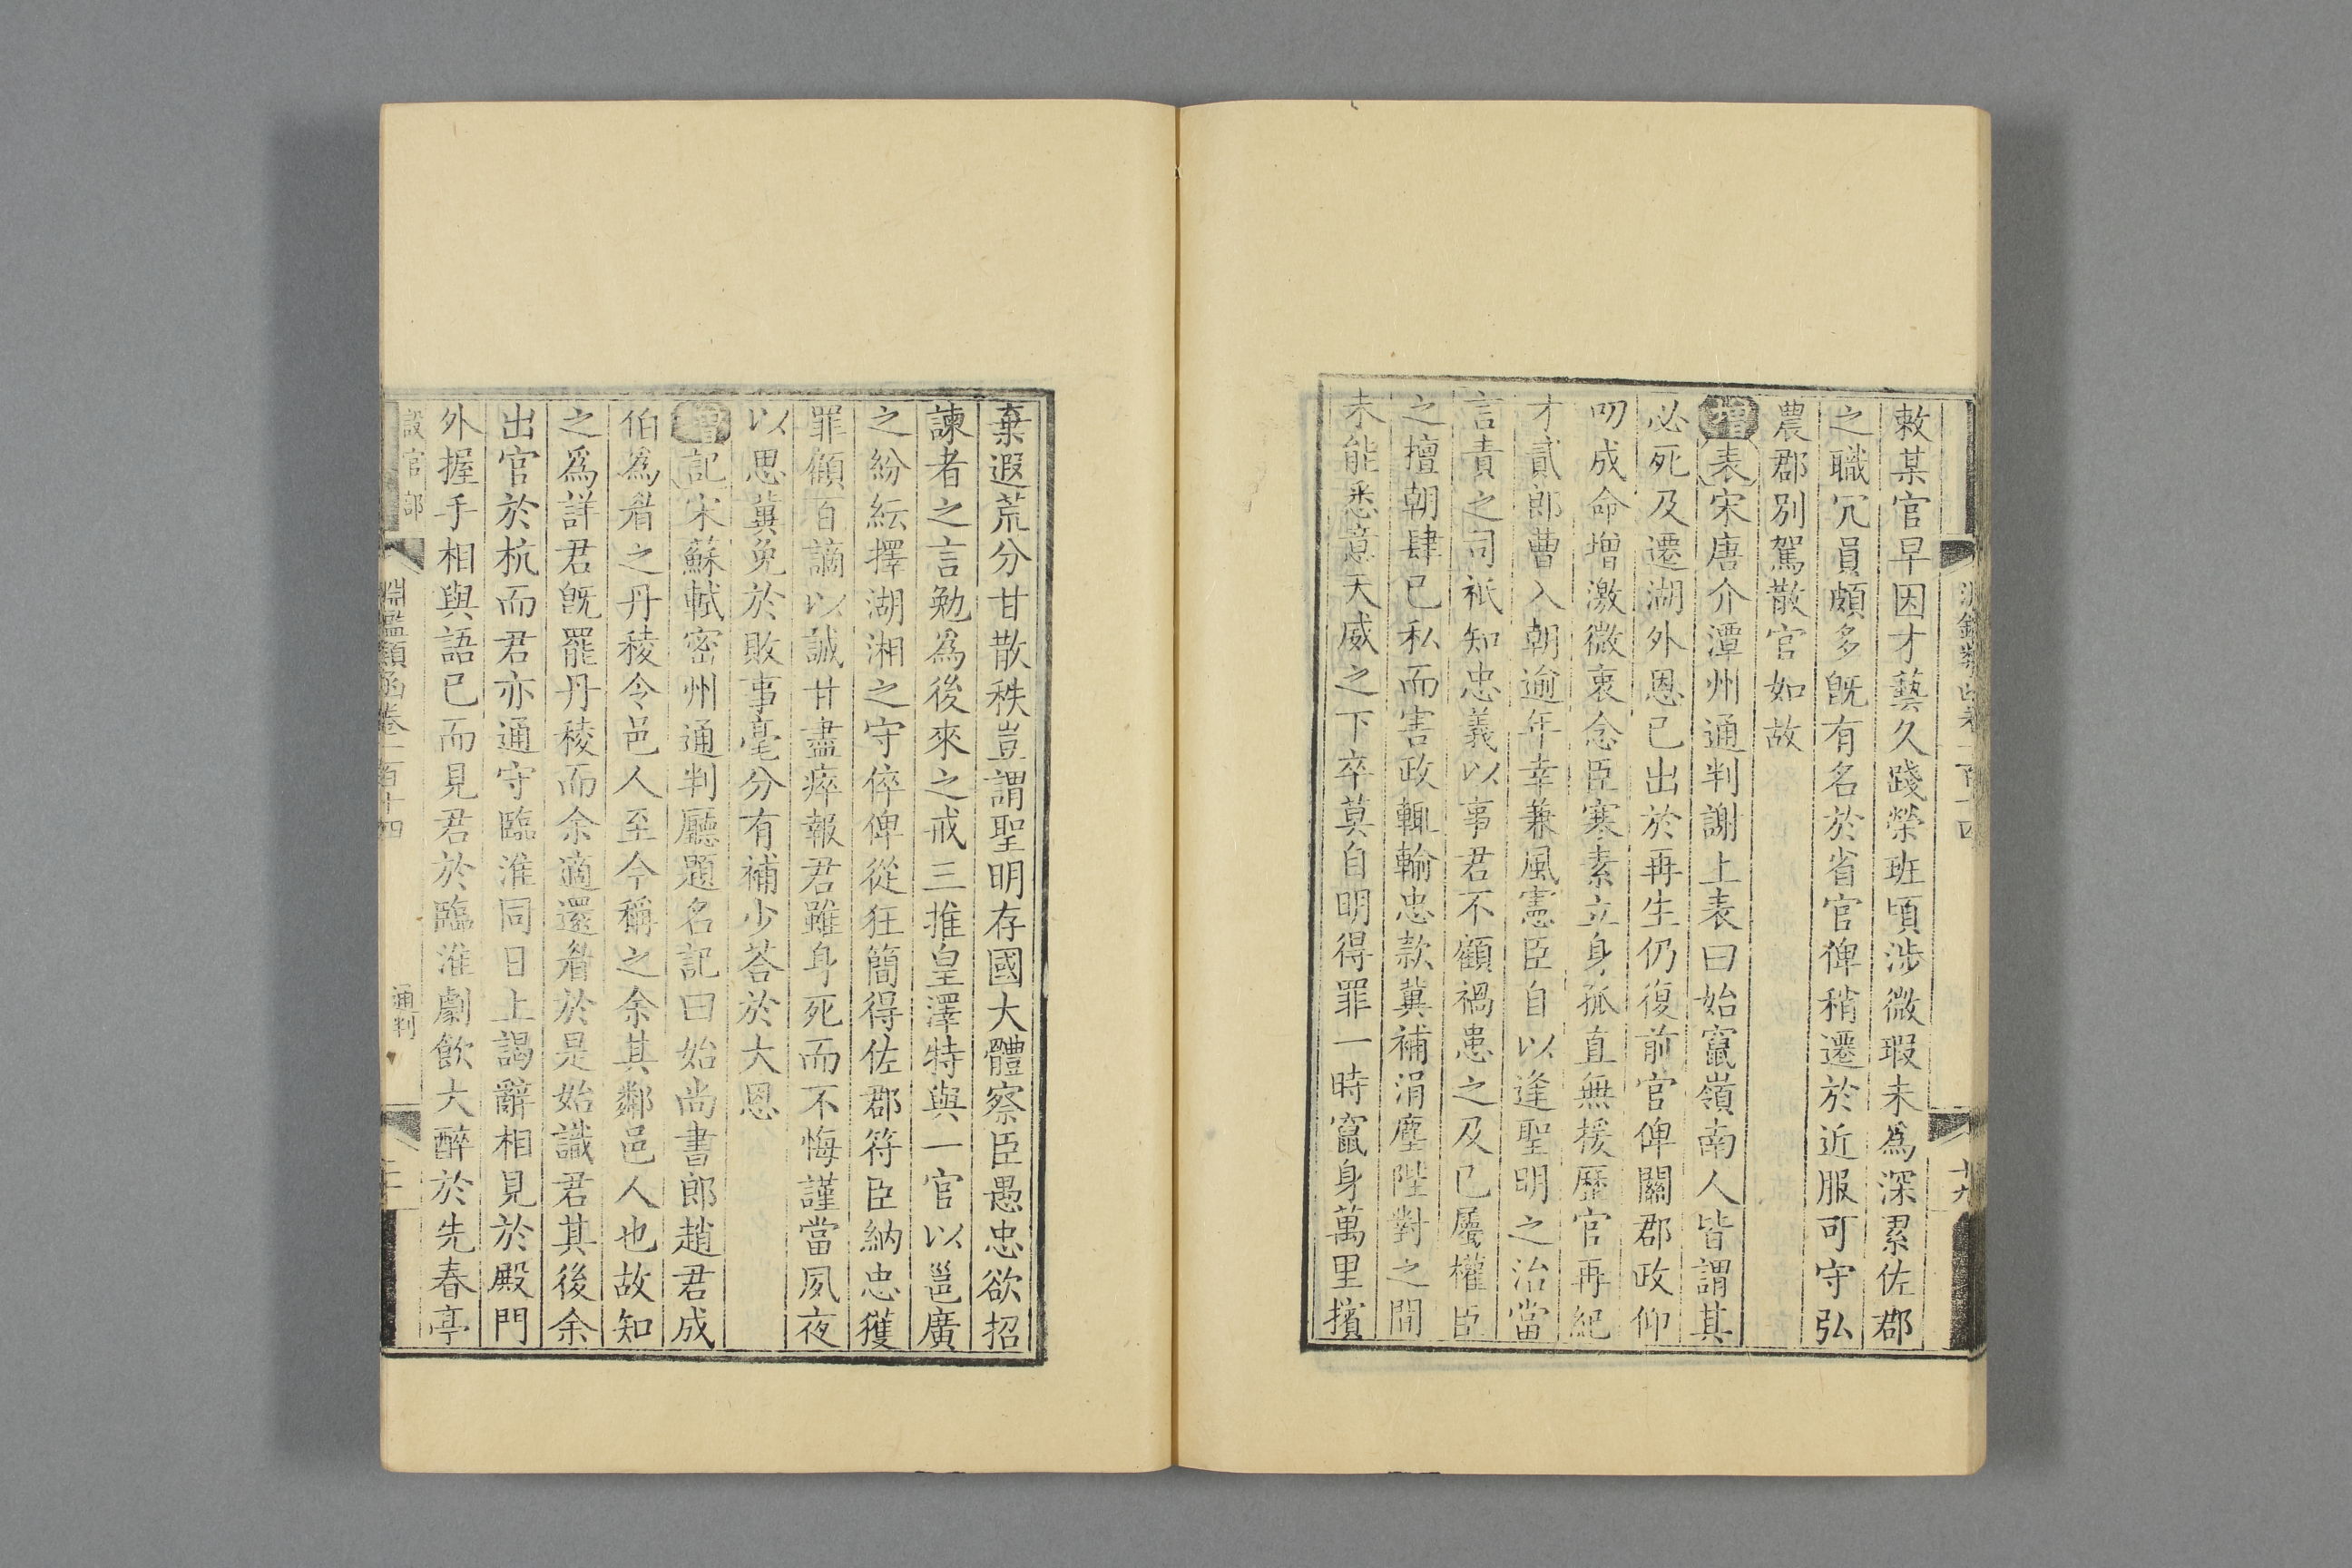 敕某官早因才藝久踐榮班頃涉微瑕未爲深累佐郡
之職冗員頗多旣有名於省官俾稍遷於近服可守弘
農郡別駕散官如故
增表宋唐介潭州通判謝上表曰始竄嶺南人皆謂其
必死及遷湖外恩已出於再生仍復前官俾關郡政仰
叨成命增激微衷念臣寒素立身孤直無援歷官再紀
才貳郎曹入朝逾年幸兼風憲臣自以逢聖明之治當
言責之司祇知忠義以事君不顧禍患之及已屬權臣
之擅朝肆已私而害政輒輸忠款冀補涓塵陛對之間
未能悉意天威之下卒莫自明得罪一時竄身萬里擯
棄遐荒分甘散秩豈謂聖明存國大體察臣愚忠欲招
諫者之言勉爲後來之戒三推皇澤特與一官以邕廣
之紛紜擇湖湘之守倅俾從狂簡得佐郡符臣納忠獲
罪顧百謫以誠甘盡瘁報君雖身死而不悔謹當夙夜
以思冀免於敗事毫分有補少荅於大恩
增記宋蘇軾密州通判廳題名記曰始尚書郎趙君成
伯爲眷之丹稜令邑人至今稱之余其鄰邑人也故知
之爲詳君旣罷丹稜而余適還眷於是始識君其後余
出官於杭而君亦通守臨淮同日上謁辭相見於殿門
外握手相與語已而見君於臨淮劇飲大醉於先春亭
設官部
淵鑑類函卷一百十四
通判